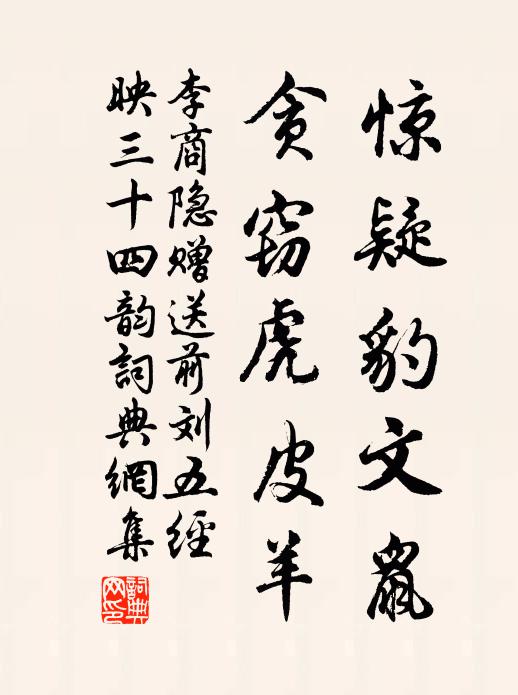 惊疑豹文鼠
贪窃虎皮羊
李商隐赠送前刘五经
映三十四韵詞典網集